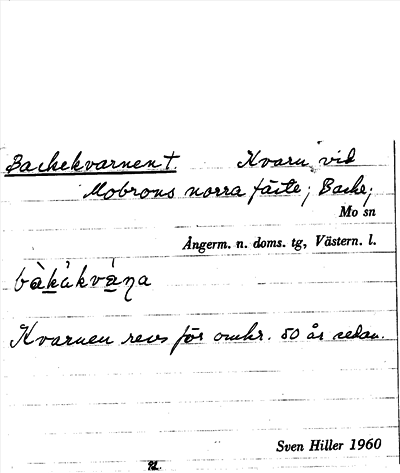 Backekvarnen †. Kvarn vid
Mobrons norra fäste; Backe;
Mo sn
Ångerm. n. doms. tg, Västern. l.
bàkåkvàna
Kvarnen revs för omkr. 50 år sedan.
Sven Hiller 1960